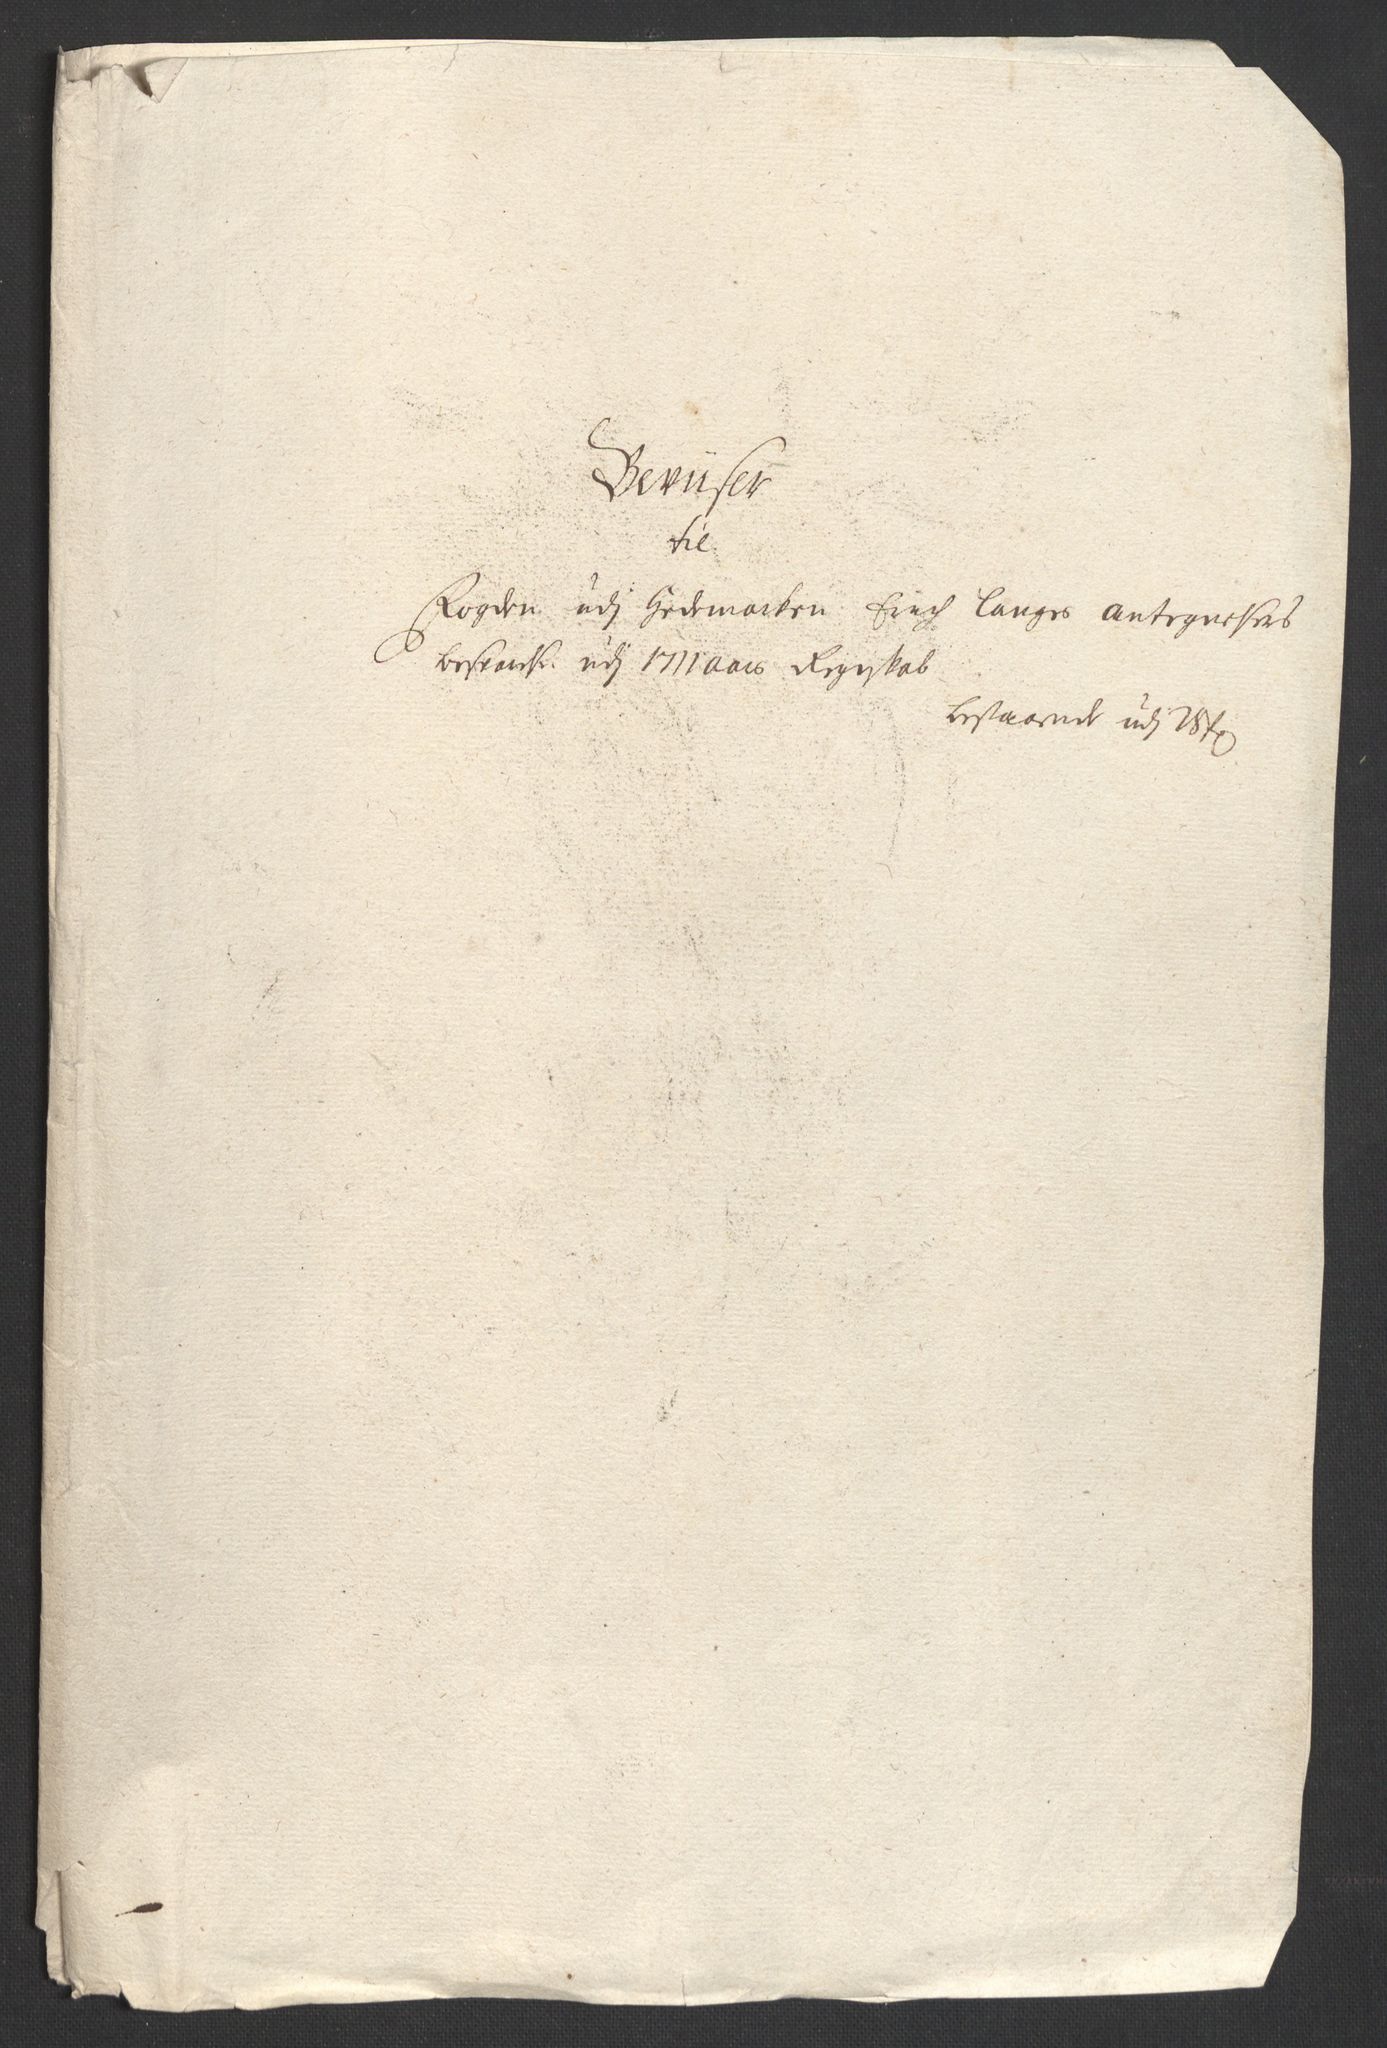 Beviiser
til
Fogden udj Hedemarken Erich Langes Antegnelsers
besvarelse udj 1711 aars Regnskab
bestaaende udj